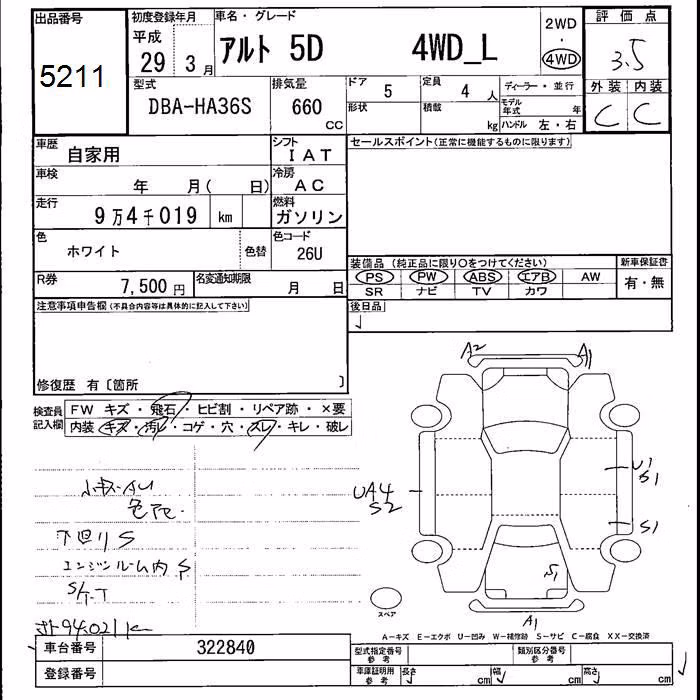 出品番号
5211
初度登録年月
平成
29 3 月
車名・グレード
アルト 5D 4WD_L
2WD
・
4WD
評価点
3.5
外装 内装
C C
型式
DBA-HA36S
排気量
660
CC
ドア
5
定員
4 人
形状
積載
kg
ディーラー・並行
モデル年式 年
ハンドル 左・右
車歴
自家用
シフト
IAT
車検
年 月( 日)
冷房
AC
走行
9万4千019 km
燃料
ガソリン
色
ホワイト
色替
色コード
26U
R券
7,500 円
名変通知期限
月 日
セールスポイント(正常に機能するものに限ります)
装備品 (純正品に限り○をつけてください)
PS PW ABS エアB AW
SR ナビ TV カワ
新車保証書
有・無
後日品
注意事項申告欄(不具合内容等は具体的に記入して下さい)
修復歴 有〔箇所 〕
検査員記入欄
FW キズ・飛石・ヒビ割・リペア跡・×要
内装 キズ・汚レ・コゲ・穴・スレ・キレ・破レ
小キズ・AU
下回りS
エンジンルーム内S
S/T.T
94021K
A2 A1
UA4
S2
U1
S1
S1
S1
A1
スペア
A―キズ E―エクボ U―凹み W―補修跡 S―サビ C―腐食 XX―交換済
車台番号
322840
登録番号
型式指定番号
参考
類別区分番号
参考
車庫証明用
参考
長さ cm 幅 cm 高さ cm